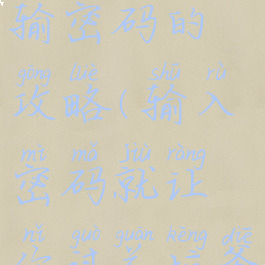 输密码的
gōng lüè shū rù
攻略(输入
mì mǎ jiù ràng
密码就让
nǐ guò guān kēng diē